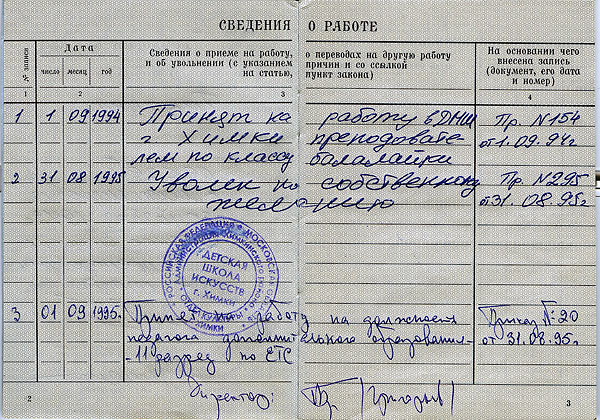 СВЕДЕНИЯ О РАБОТЕ
№ записи
Дата
число месяц год
Сведения о приеме на работу, о переводах на другую работу
и об увольнении (с указанием причин и со ссылкой
на статью, пункт закона)
На основании чего
внесена запись
(документ, его дата
и номер)
1 2 3 4
1 1 09 1994 Принят на работу в ДШИ Пр. N154
г Химки преподавате- от 1.09.94г.
лем по классу балалайки
2 31 08 1995 Уволен по собственному Пр. N295
желанию от 31.08.95г
РОССИЙСКАЯ ФЕДЕРАЦИЯ МОСКОВСКАЯ
АДМИНИСТРАЦИЯ ХИМКИНСКОГО
ДЕТСКАЯ
ШКОЛА
ИСКУССТВ
г. Химки
3 01 09 1995. Принят на работу на должность Приказ № 20
педагога дополнительного образования- от 31.08.95г.
-11 разряд по ЕТС
Директор:
2 3